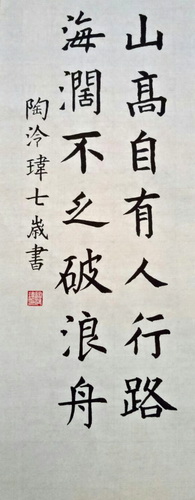 山髙自有人行路
海濶不乏破浪舟
陶泠瑋七歲書